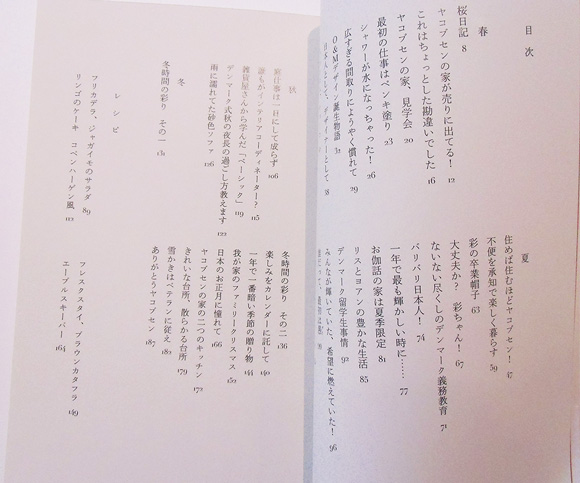 目次
春
桜日記 8
ヤコブセンの家が売りに出てる! 12
これはちょっとした勘違いでした 16
ヤコブセンの家、見学会 20
最初の仕事はペンキ塗り 23
シャワーが水になっちゃった! 26
広すぎる間取りにようやく慣れて 29
O&Mデザイン誕生物語 32
日本人として、デザイナーとして 38
夏
住めば住むほどヤコブセン! 47
不便を承知で楽しく暮らす 59
彩の卒業帽子 63
大丈夫か? 彩ちゃん! 67
ないない尽くしのデンマーク義務教育 71
バリバリ日本人! 74
一年で最も輝かしい時に…… 77
お伽話の家は夏季限定 81
リスとヨアンの豊かな生活 85
デンマーク留学生事情 92
みんなが輝いていた、希望に燃えていた! 96
秋
庭仕事は一日にして成らず 106
誰もがインテリアコーディネーター? 115
雑貨屋さんから学んだ「ベーシック」 119
デンマーク式秋の夜長の過ごし方教えます 122
雨に濡れてた砂色ソファ 126
冬
冬時間の彩り その一 131
冬時間の彩り その二 136
楽しみをカレンダーに託して 140
一年で一番暗い季節の贈り物 144
我が家のファミリークリスマス 152
日本のお正月に憧れて 166
ヤコブセンの家の二つのキッチン 172
きれいな台所、散らかる台所 179
雪かきはベテランに従え 182
ありがとうヤコブセン 187
レシピ
フリカデラ、ジャガイモのサラダ 89
リンゴのケーキ コペンハーゲン風 112
フレスクスタイ、ブラウンカタフラ 149
エーブルスキーバー 164